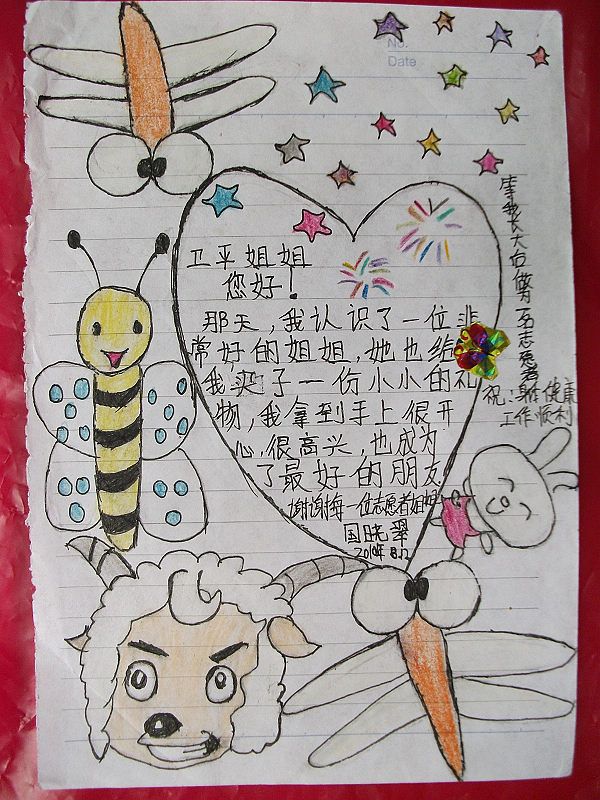 No.
Date
卫平姐姐
您好！
那天，我认识了一位非
常好的姐姐，她也给
我买了一份小小的礼
物，我拿到手上很开
心，很高兴，也成为
了最好的朋友
谢谢每一位志愿者姐姐
国晓翠
8.12
我长大后做一名志愿者
祝：健康
工作顺利